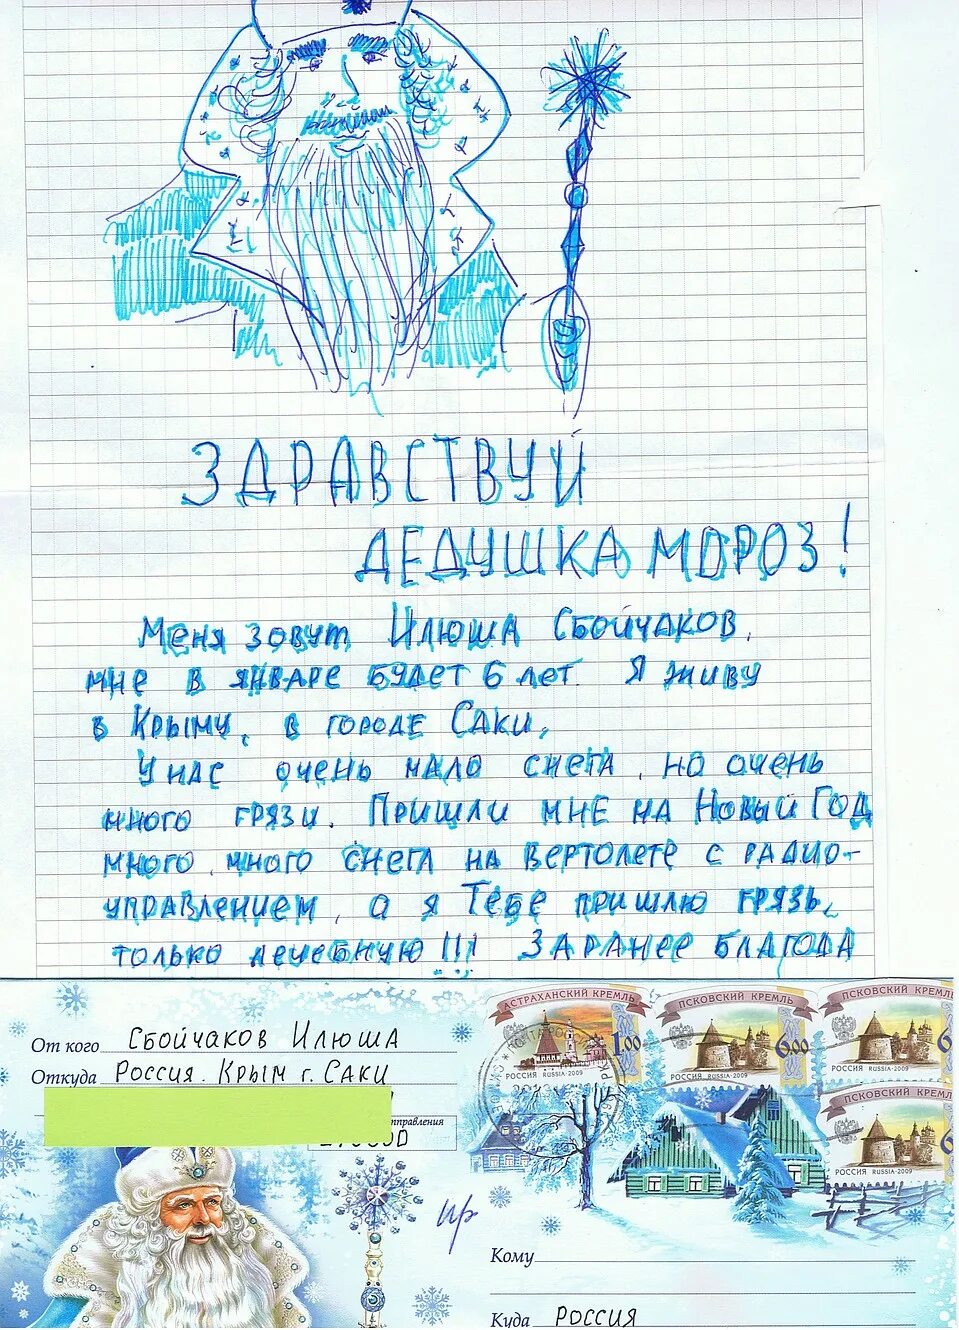 ЗДРАВСТВУЙ
ДЕДУШКА МОРОЗ!
Меня зовут Илюша Сбойчаков,
мне в январе будет 6 лет. Я живу
в Крыму, в городе Саки,
У нас очень мало снега, но очень
много грязи. Пришли мне на Новый Год
много, много снега на вертолете с радио-
управлением, а я Тебе пришлю грязь,
только лечебную!!! Заранее благода
От кого Сбойчаков Илюша
Откуда Россия. Крым г. Саки
АСТРАХАНСКИЙ КРЕМЛЬ
1.00
РОССИЯ RUSSIA·2009
ПСКОВСКИЙ КРЕМЛЬ
6.00
РОССИЯ RUSSIA·2009
ПСКОВСКИЙ КРЕМЛЬ
6
РОССИЯ RUSSIA·2009
ПСКОВСКИЙ КРЕМЛЬ
6
РОССИЯ RUSSIA·2009
Кому
Куда Россия